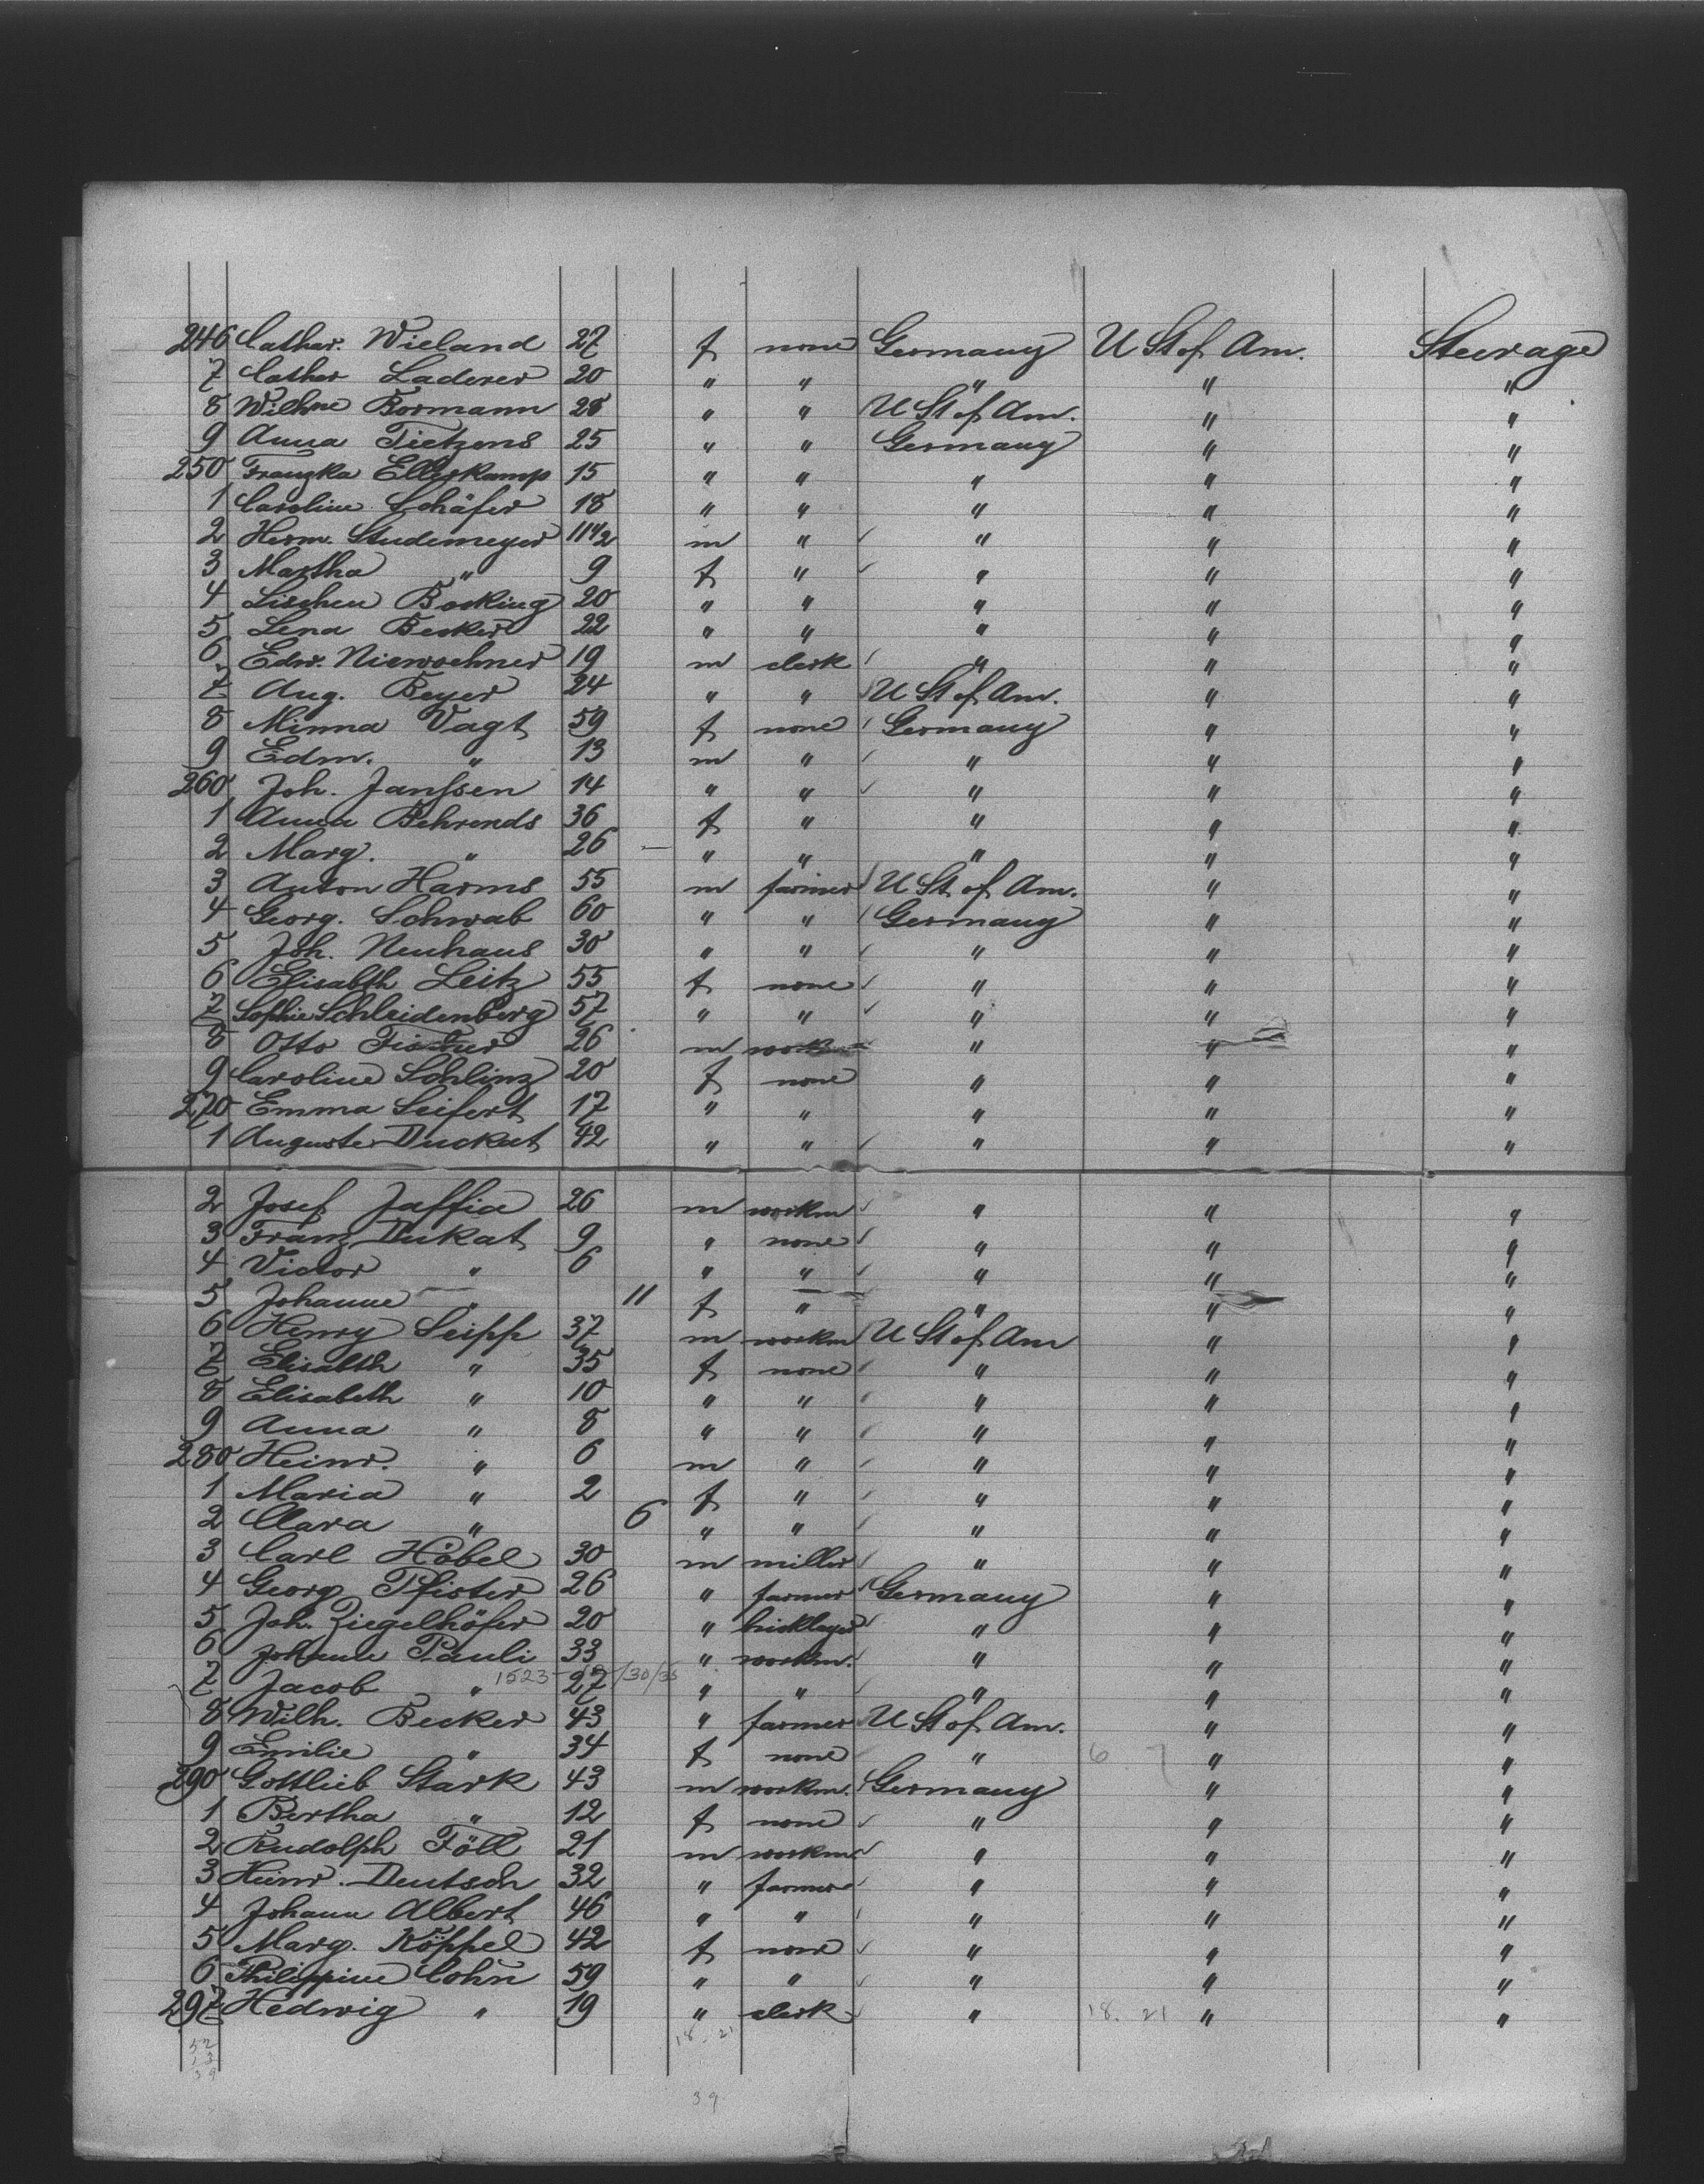 246 Cathar. Wieland 27 f none Germany U St of Am. Steerage
7 Cathar Laderer 20 " " " " "
8 Wilhne Bormann 28 " " U St of Am. " "
9 Anna Tietzens 25 " " Germany " "
250 Franzka Ellerkamp 15 " " " " "
1 Caroline Schäfer 18 " " " " "
2 Herm. Studemeyer 11 1/2 m " " " "
3 Martha " 9 f " " " "
4 Lischen Bocking 20 " " " " "
5 Lena Becker 22 " " " " "
6 Edw. Nierwoehner 19 m clerk " " "
7 Aug. Beyer 24 " " U St of Am. " "
8 Minna Vagt 59 f none Germany " "
9 Edm. " 13 m " " " "
260 Joh. Janssen 14 " " " " "
1 Anna Behrends 36 f " " " "
2 Marg. " 26 " " " " "
3 Anton Harms 55 m farmer U St of Am. " "
4 Georg. Schwab 60 " " Germany " "
5 Joh. Neuhaus 30 " " " " "
6 Elisabth Leitz 55 f none " " "
7 Sophie Schleidenberg 57 " " " " "
8 Otto Fischer 26 m workm " " "
9 Caroline Schlinz 20 f none " " "
270 Emma Seifert 17 " " " " "
1 Auguste Duckat 42 " " " " "
2 Josef Jaffia 26 m workm " " "
3 Franz Dukat 9 " none " " "
4 Victor " 6 " " " " "
5 Johanne " 11 f " " " "
6 Henry Seipp 37 m workm U St of Am " "
7 Elisabth " 35 f none " " "
8 Elisabeth " 10 " " " " "
9 Anna " 8 " " " " "
280 Heinr. " 6 m " " " "
1 Maria " 2 f " " " "
2 Clara " 6 " " " " "
3 Carl Höbel 30 m miller " " "
4 Georg Pfister 26 " farmer Germany " "
5 Joh. Ziegelhöfer 20 " bricklayer " " "
6 Pauli 33 " workm. " " "
7 Jacob " 1523 27 /30/35 " " " " "
8 Wilh. Becker 43 " farmer U St of Am. " "
9 Emilie " 34 f none " 6 7 " "
290 Gottlieb Stark 43 m workm. Germany " "
1 Bertha " 12 f none " " "
2 Rudolph Föll 21 m workm " " "
3 Heinr. Deutsch 32 " farmer " " "
4 Johann Albert 46 " " " " "
5 Marg. Köppel 42 f none " " "
6 Philippine Cohn 59 " " " " "
297 Hedwig " 19 " clerk " 18. 21 " "
52 18. 21
13
39
39